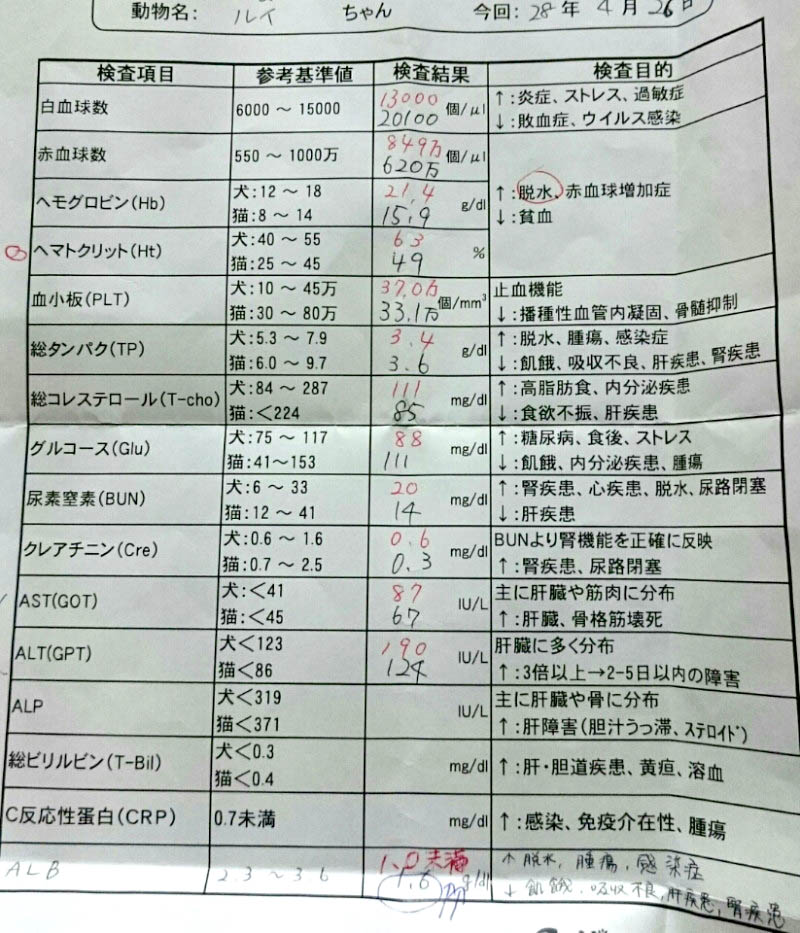 動物名: ルイ ちゃん 今回: 28 年 4 月 26 日
検査項目 参考基準値 検査結果 検査目的
白血球数 6000 ～ 15000 13000 20100 個/μl
↑:炎症、ストレス、過敏症
↓:敗血症、ウイルス感染
赤血球数 550 ～ 1000万 849万 620万 個/μl
ヘモグロビン(Hb) 犬:12 ～ 18 21.4 g/dl
猫:8 ～ 14 15.9
↑:脱水、赤血球増加症
↓:貧血
ヘマトクリット(Ht) 犬:40 ～ 55 63 %
猫:25 ～ 45 49
血小板(PLT) 犬:10 ～ 45万 37.0万 個/mm³ 止血機能
猫:30 ～ 80万 33.1万 ↓:播種性血管内凝固、骨髄抑制
総タンパク(TP) 犬:5.3 ～ 7.9 3.4 g/dl ↑:脱水、腫瘍、感染症
猫:6.0 ～ 9.7 3.6 ↓:飢餓、吸収不良、肝疾患、腎疾患
総コレステロール(T-cho) 犬:84 ～ 287 111 mg/dl ↑:高脂肪食、内分泌疾患
猫:＜224 85 ↓:食欲不振、肝疾患
グルコース(Glu) 犬:75 ～ 117 88 mg/dl ↑:糖尿病、食後、ストレス
猫:41～153 111 ↓:飢餓、内分泌疾患、腫瘍
尿素窒素(BUN) 犬:6 ～ 33 20 mg/dl ↑:腎疾患、心疾患、脱水、尿路閉塞
猫:12 ～ 41 14 ↓:肝疾患
クレアチニン(Cre) 犬:0.6 ～ 1.6 0.6 mg/dl BUNより腎機能を正確に反映
猫:0.7 ～ 2.5 0.3 ↑:腎疾患、尿路閉塞
AST(GOT) 犬:＜41 87 IU/L 主に肝臓や筋肉に分布
猫:＜45 67 ↑:肝臓、骨格筋壊死
ALT(GPT) 犬＜123 190 IU/L 肝臓に多く分布
猫＜86 124 ↑:3倍以上→2-5日以内の障害
ALP 犬＜319 IU/L 主に肝臓や骨に分布
猫＜371 ↑:肝障害(胆汁うっ滞、ステロイド)
総ビリルビン(T-Bil) 犬＜0.3 mg/dl ↑:肝・胆道疾患、黄疸、溶血
猫＜0.4
C反応性蛋白(CRP) 0.7未満 mg/dl ↑:感染、免疫介在性、腫瘍
ALB 2.3 ～ 3.6 1.0未満 1.6 g/dl
↑ 脱水, 腫瘍, 感染症
↓ 飢餓, 吸収不良, 肝疾患, 腎疾患